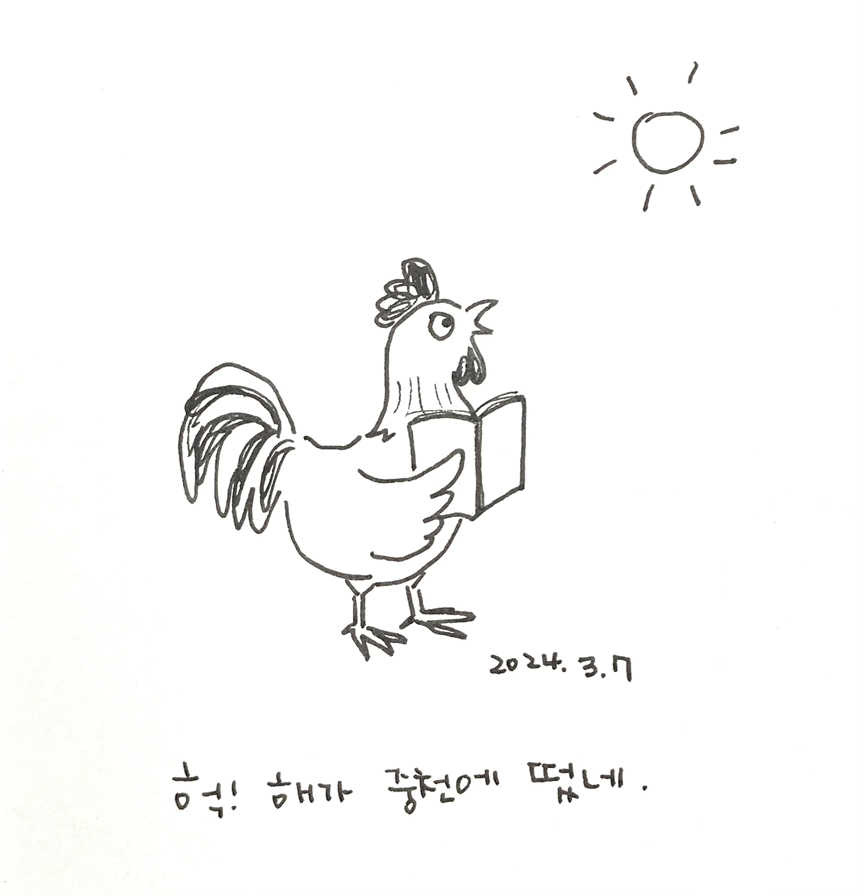 2024. 3. 7
헉! 해가 중천에 떴네.